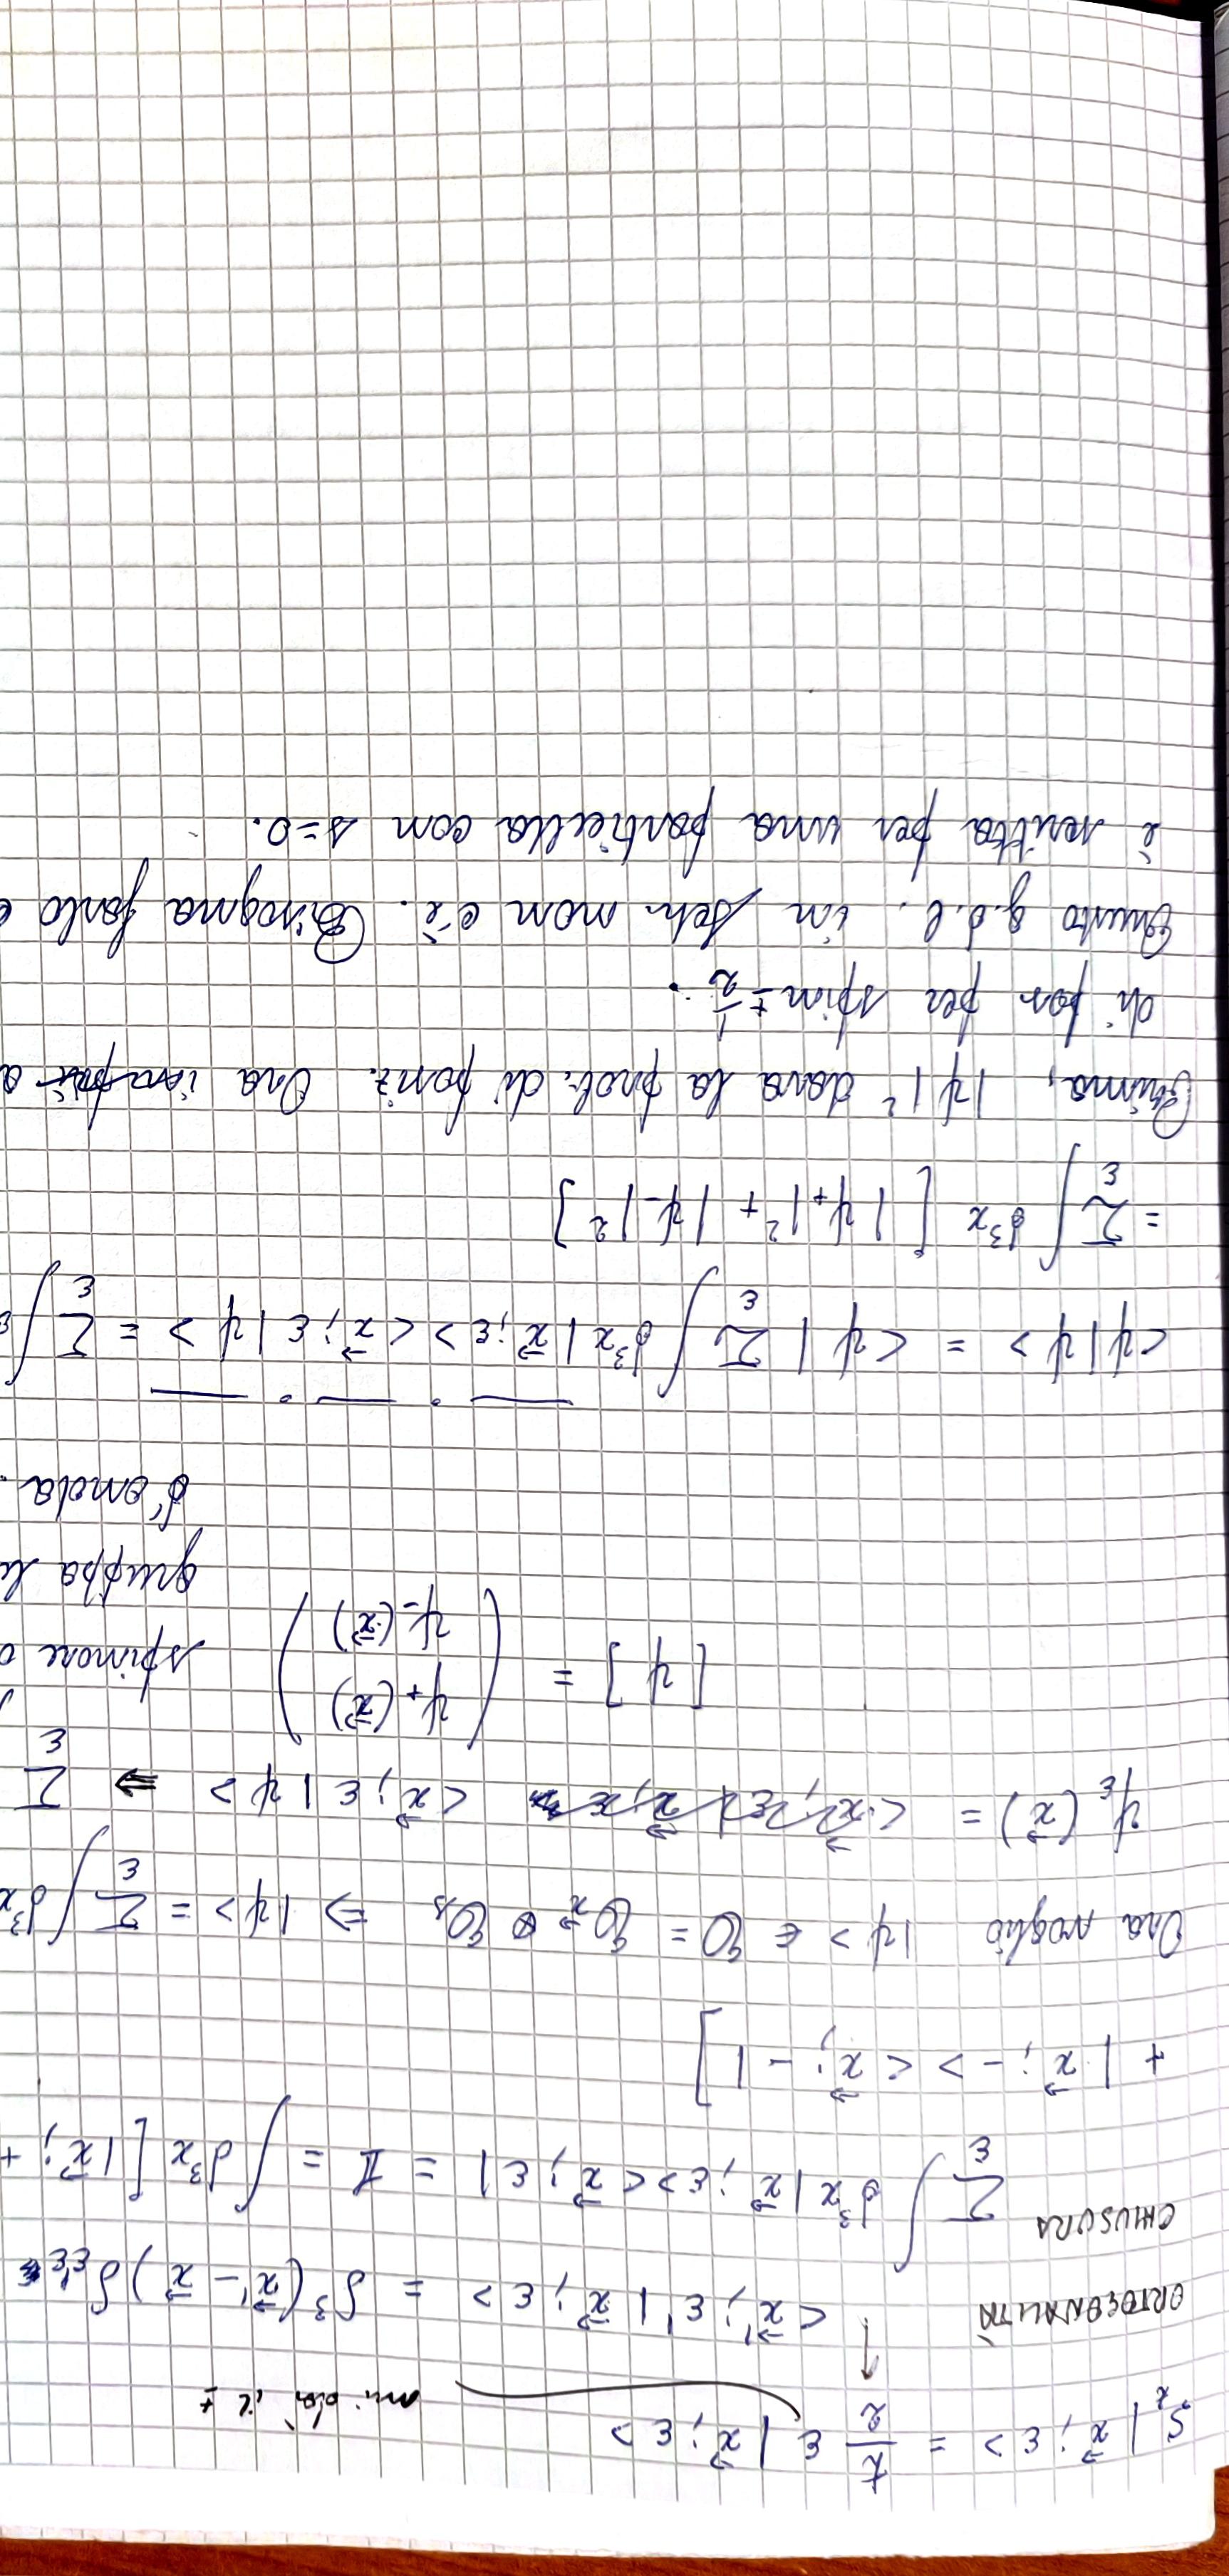 S_z |x⃗; ε> = ħ/2 ε |x⃗; ε>
mi dà il ±
ORTOGONALITÀ <x⃗'; ε' | x⃗; ε> = δ³(x⃗' - x⃗) δ_ε'ε
CHIUSURA Σ_ε ∫ d³x |x⃗; ε> <x⃗; ε| = 𝟙 = ∫ d³x [ |x⃗; +
+ |x⃗; -> <x⃗; -| ]
Ora voglio |ψ> ∈ ℰ = ℰ_x⃗ ⊗ ℰ_s ⇒ |ψ> = Σ_ε ∫ d³x
ψ_ε (x⃗) = <x⃗; ε | ψ> ⇒ Σ_ε
[ψ] = ( ψ₊(x⃗) ψ₋(x⃗) ) spinore
gruppa le
d'onda.
<ψ|ψ> = <ψ| Σ_ε ∫ d³x |x⃗; ε> <x⃗; ε | ψ> = Σ_ε ∫
= Σ_ε ∫ d³x [ |ψ₊|² + |ψ₋|² ]
Prima, |ψ|² dava la prob. di posiz. Ora
di pos per spin ± 1/2.
Questo g.d.l. in Sch. non c'è. Bisogna farlo
è scritta per una particella con s=0.